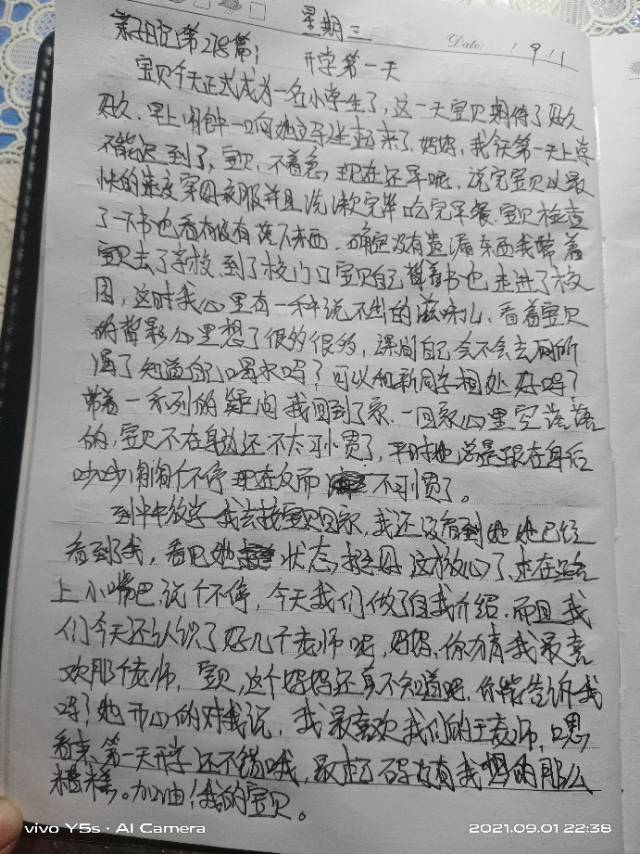 星期三
Date: 9 1
亲子日记第278篇； 开学第一天
宝贝今天正式成为一名小学生了，这一天宝贝期待了好久
好久，早上闹钟一响她立马坐起来了，妈妈，我今天第一天上学
不能迟到了，宝贝，不着急，现在还早呢，说完宝贝以最
快的速度穿好衣服并且洗漱完毕吃完早餐，宝贝检查
了一下书包看有没有落下东西，确定没有遗漏东西我带着
宝贝去了学校，到了校门口宝贝自己背着书包走进了校
园，这时我心里有一种说不出的滋味儿，看着宝贝
的背影心里想了很多很多，课间自己会不会去厕所
渴了知道自己喝水吗？可以和新同学相处好吗？
带着一系列的疑问我回到了家，一回家心里空落落
的，宝贝不在身边还不太习惯了，平时她总是跟在身后
吵吵闹闹个不停现在反而不习惯了。
到中午放学我去接宝贝回家，我还没看到她她已经
看到我，看见她状态挺好这放心了，走在路
上小嘴巴说个不停，今天我们做了自我介绍，而且我
们今天还认识了好几个老师呢，妈妈，你猜我最喜
欢那个老师，宝贝，这个妈妈还真不知道呢，你能告诉我
吗？她开心的对我说，我最喜欢我们的王老师，嗯
看来，第一天开学还不错哦，最起码没有我想的那么
糟糕。加油！我的宝贝。
vivo Y5s · AI Camera
2021.09.01 22:38